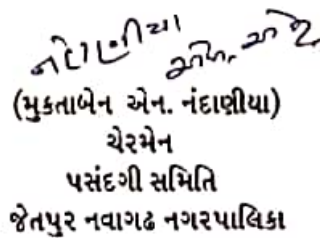 (મુકતાબેન એન. નંદાણીયા)
ચેરમેન
પસંદગી સમિતિ
જેતપુર નવાગઢ નગરપાલિકા